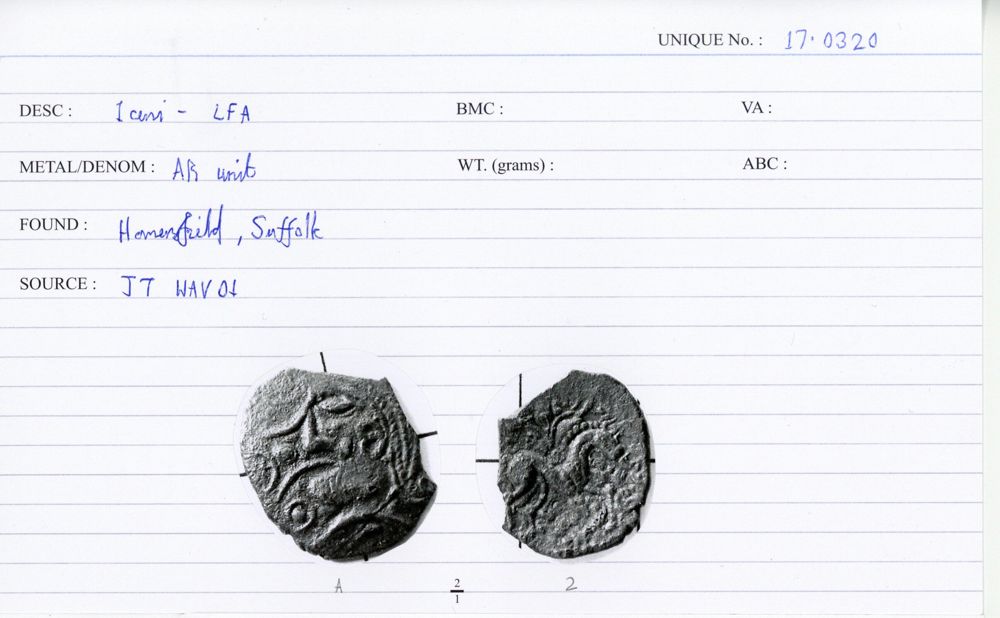 UNIQUE No. : 17.0320
DESC : Iceni - LFA BMC : VA :
METAL/DENOM : AR unit WT. (grams) : ABC :
FOUND : Homersfield, Suffolk
SOURCE : JT WAV01
A 2/1 2